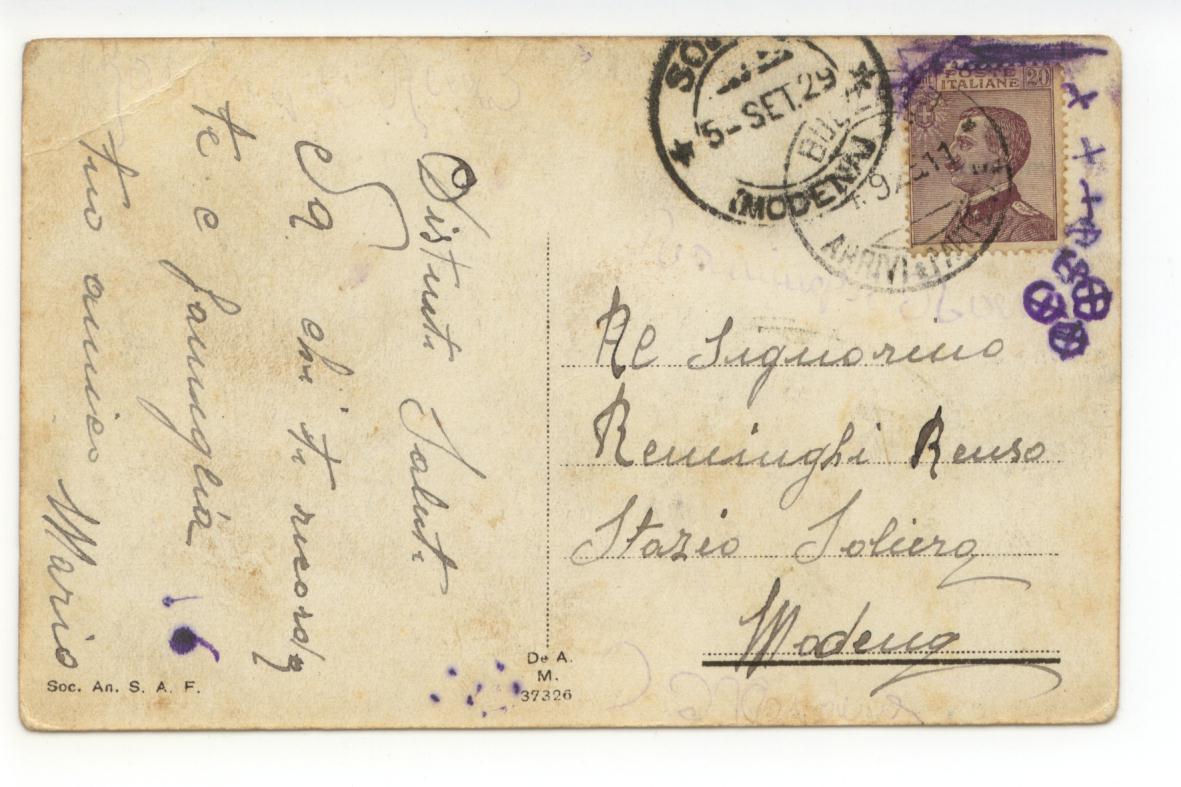 Distinti Saluti
Da chi ti ricorda
te e famiglia
tuo amico Mario
Soc. An. S. A. F.
De A.
M.
37326
(MODENA)
5- SET. 29
POSTE
ITALIANE
20
ARRIVI
Al Signorino
Reminghi Renso
Stazio Soliera
Modena